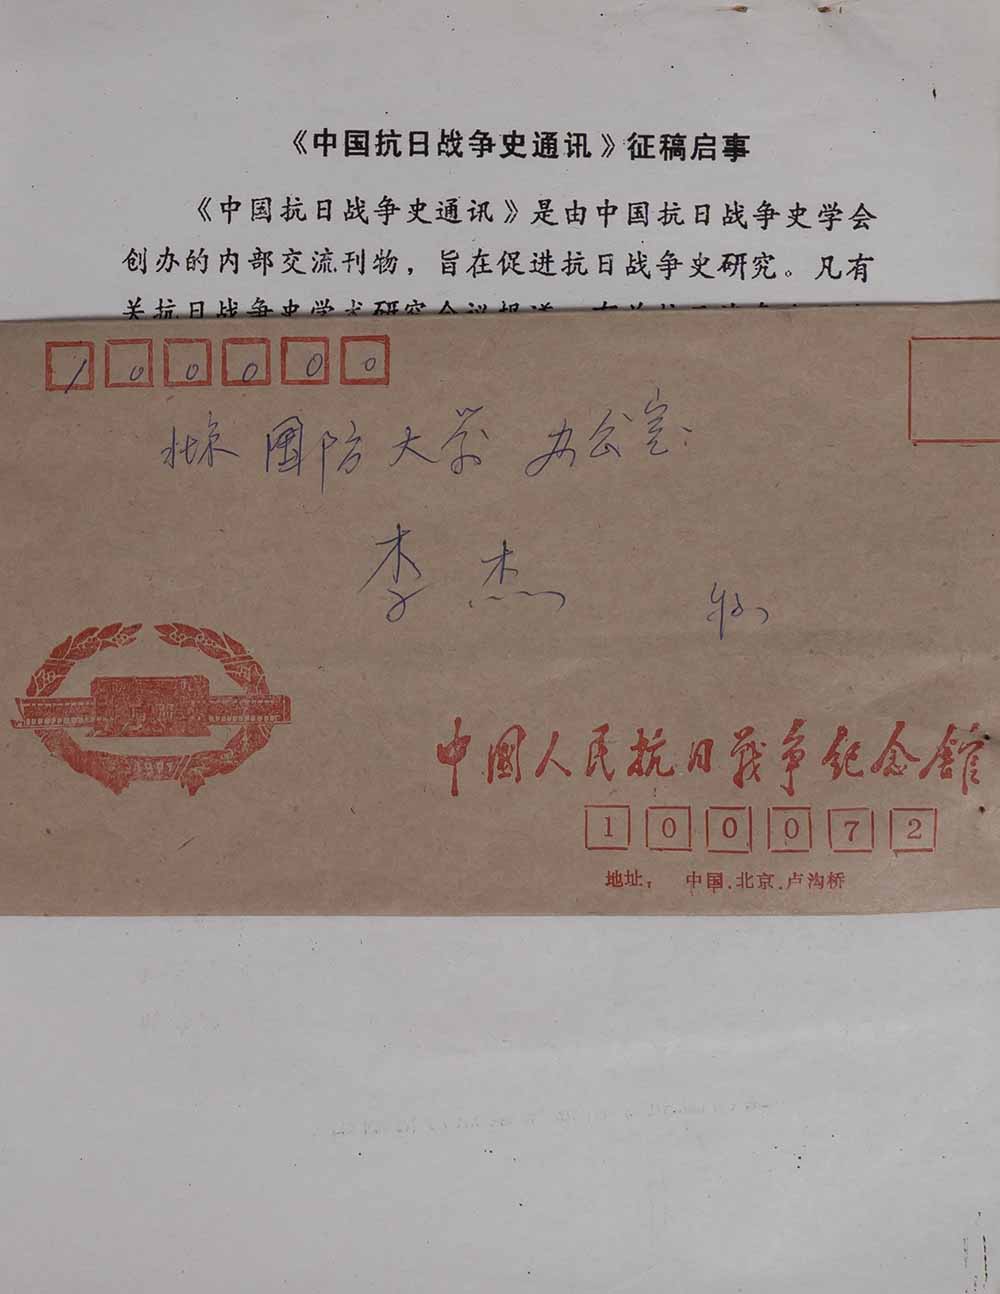 《中国抗日战争史通讯》征稿启事
《中国抗日战争史通讯》是由中国抗日战争史学会
创办的内部交流刊物，旨在促进抗日战争史研究。凡有
关抗日战争史学术研究会议报道、有关抗日战争史
100000
北京国防大学办公室：
李杰
1987
中國人民抗日戰爭紀念館
100072
地址： 中国.北京.卢沟桥